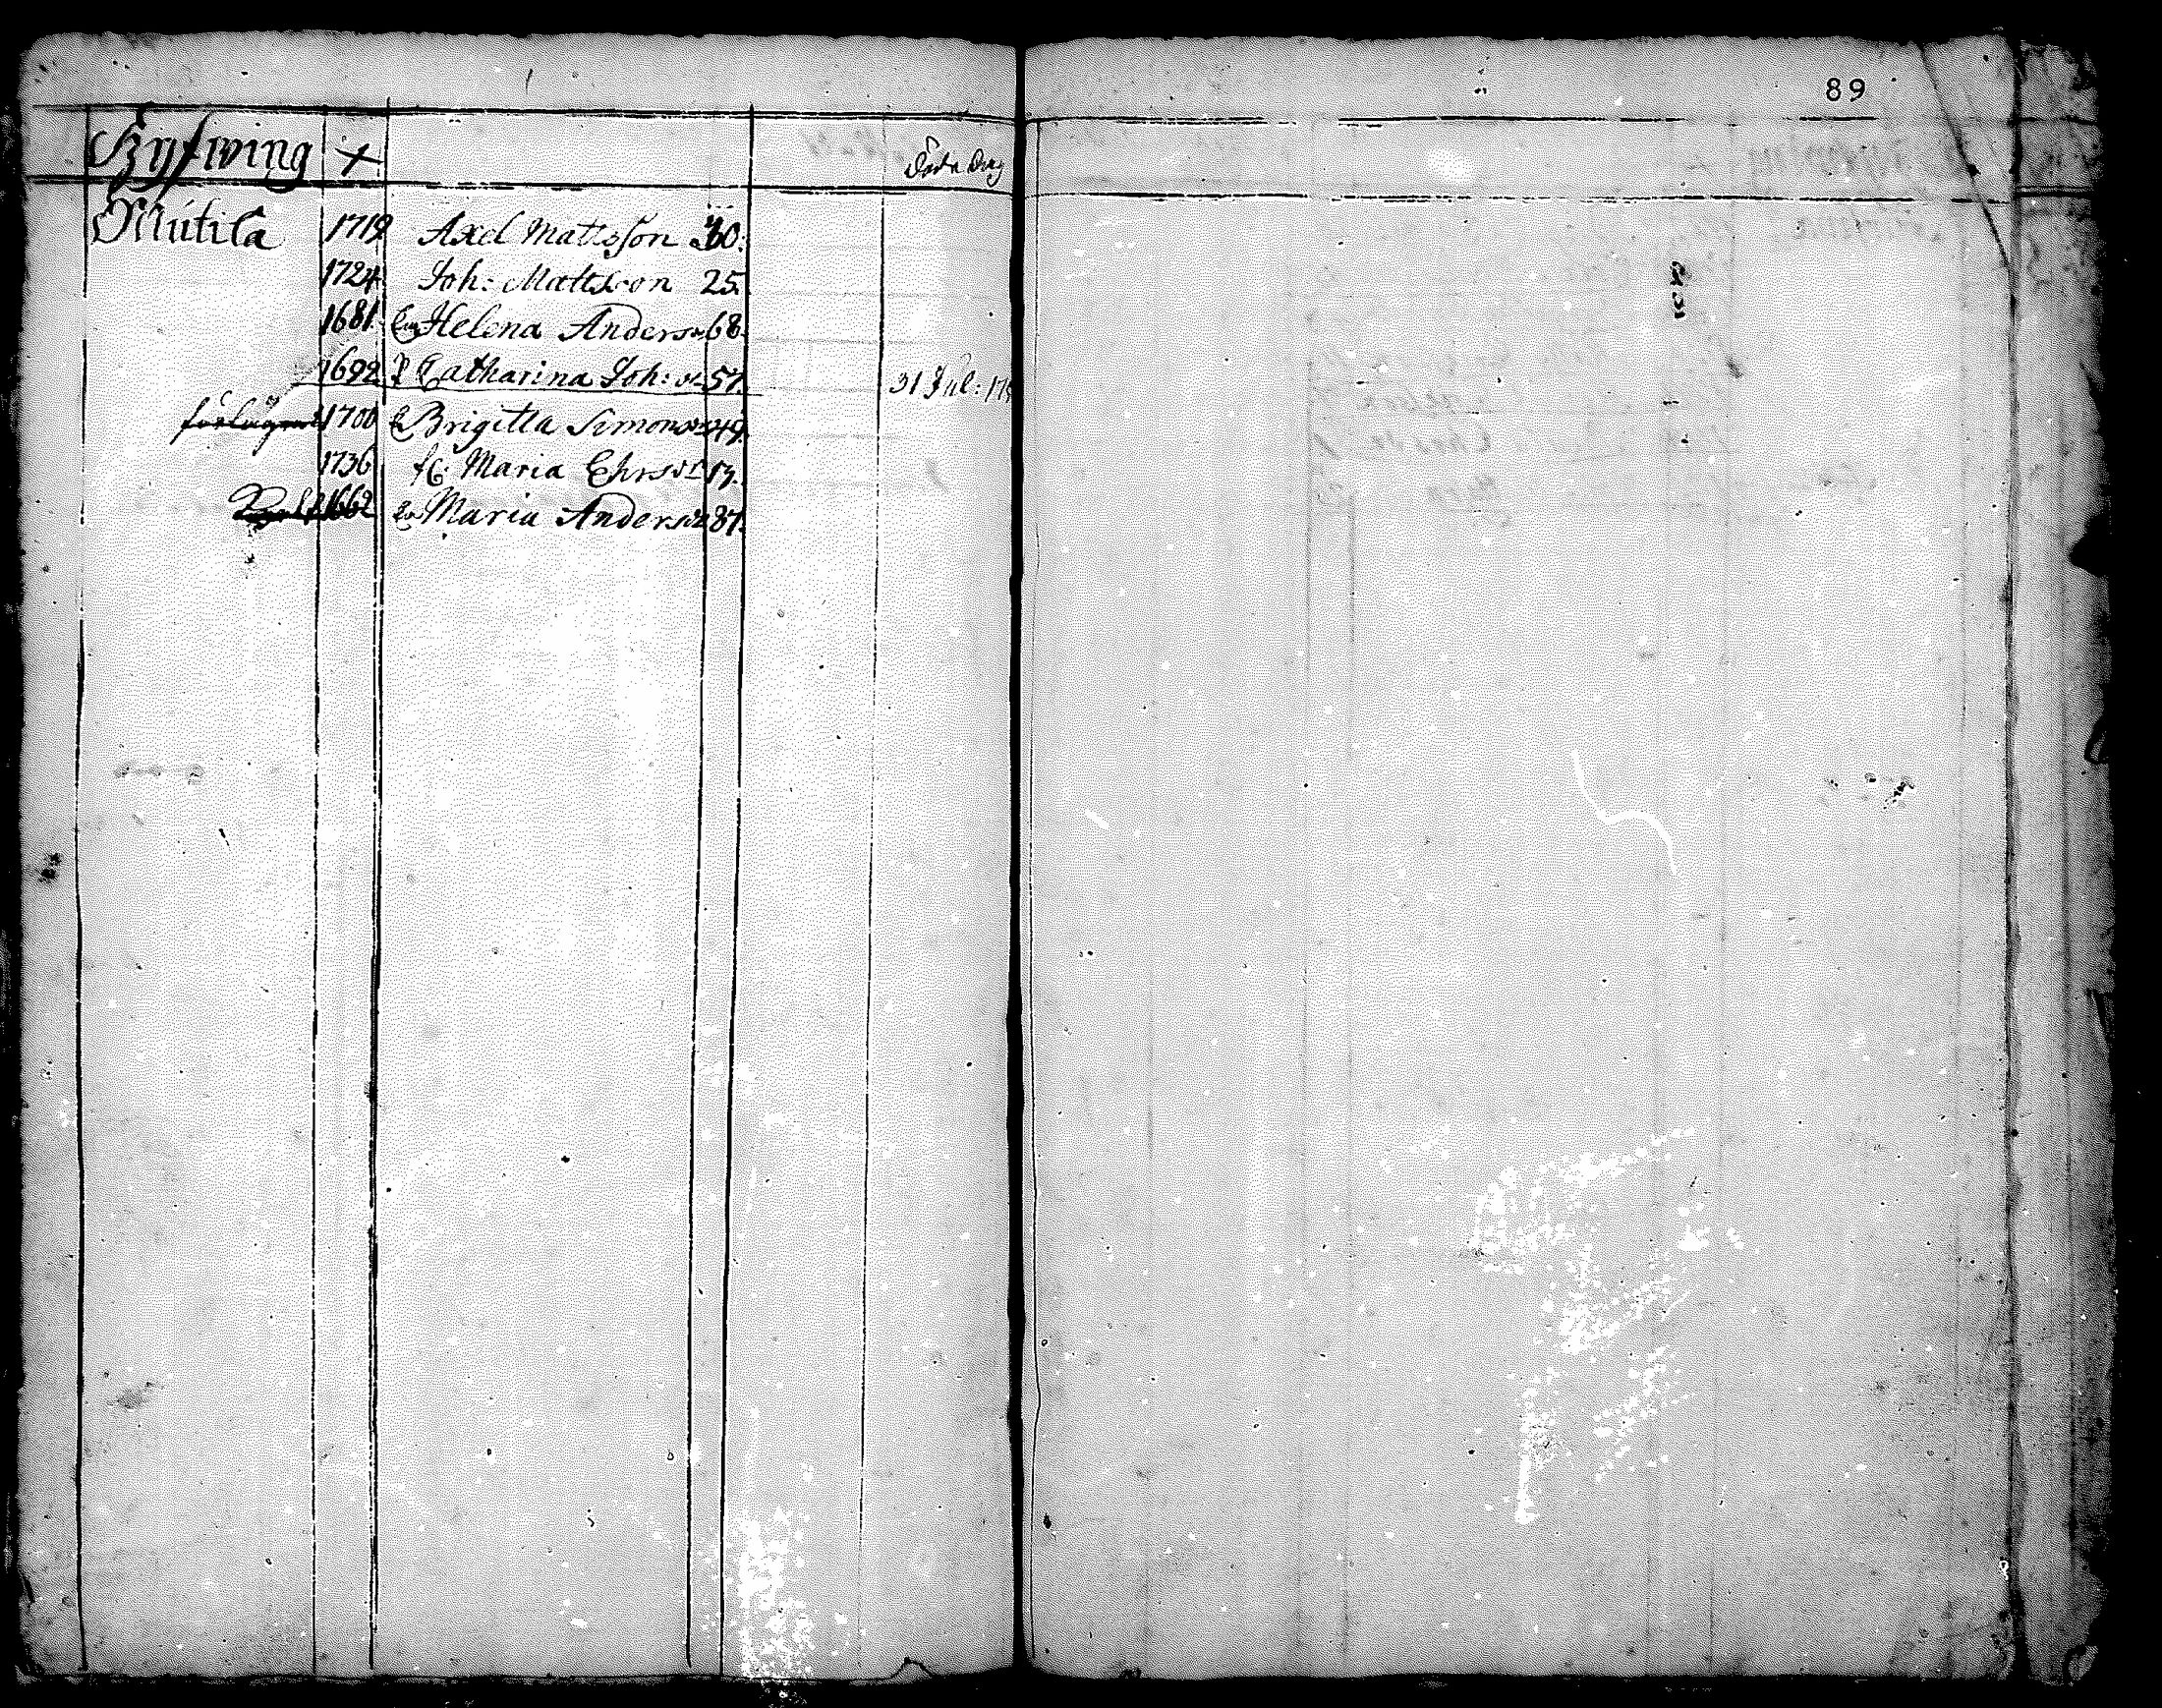 89
Syswing + Döda Dag
Mutila 1719 Axel Mattsson 30.
1724 Joh: Mattsson 25.
1681 Helena Andersdr 68.
1692 Catharina Joh: dr 57. 31 Jul: 17
1700 Brigitta Simonsdr 49.
1736 Maria Ehrsdr 13.
1662 Maria Andersdr 87.